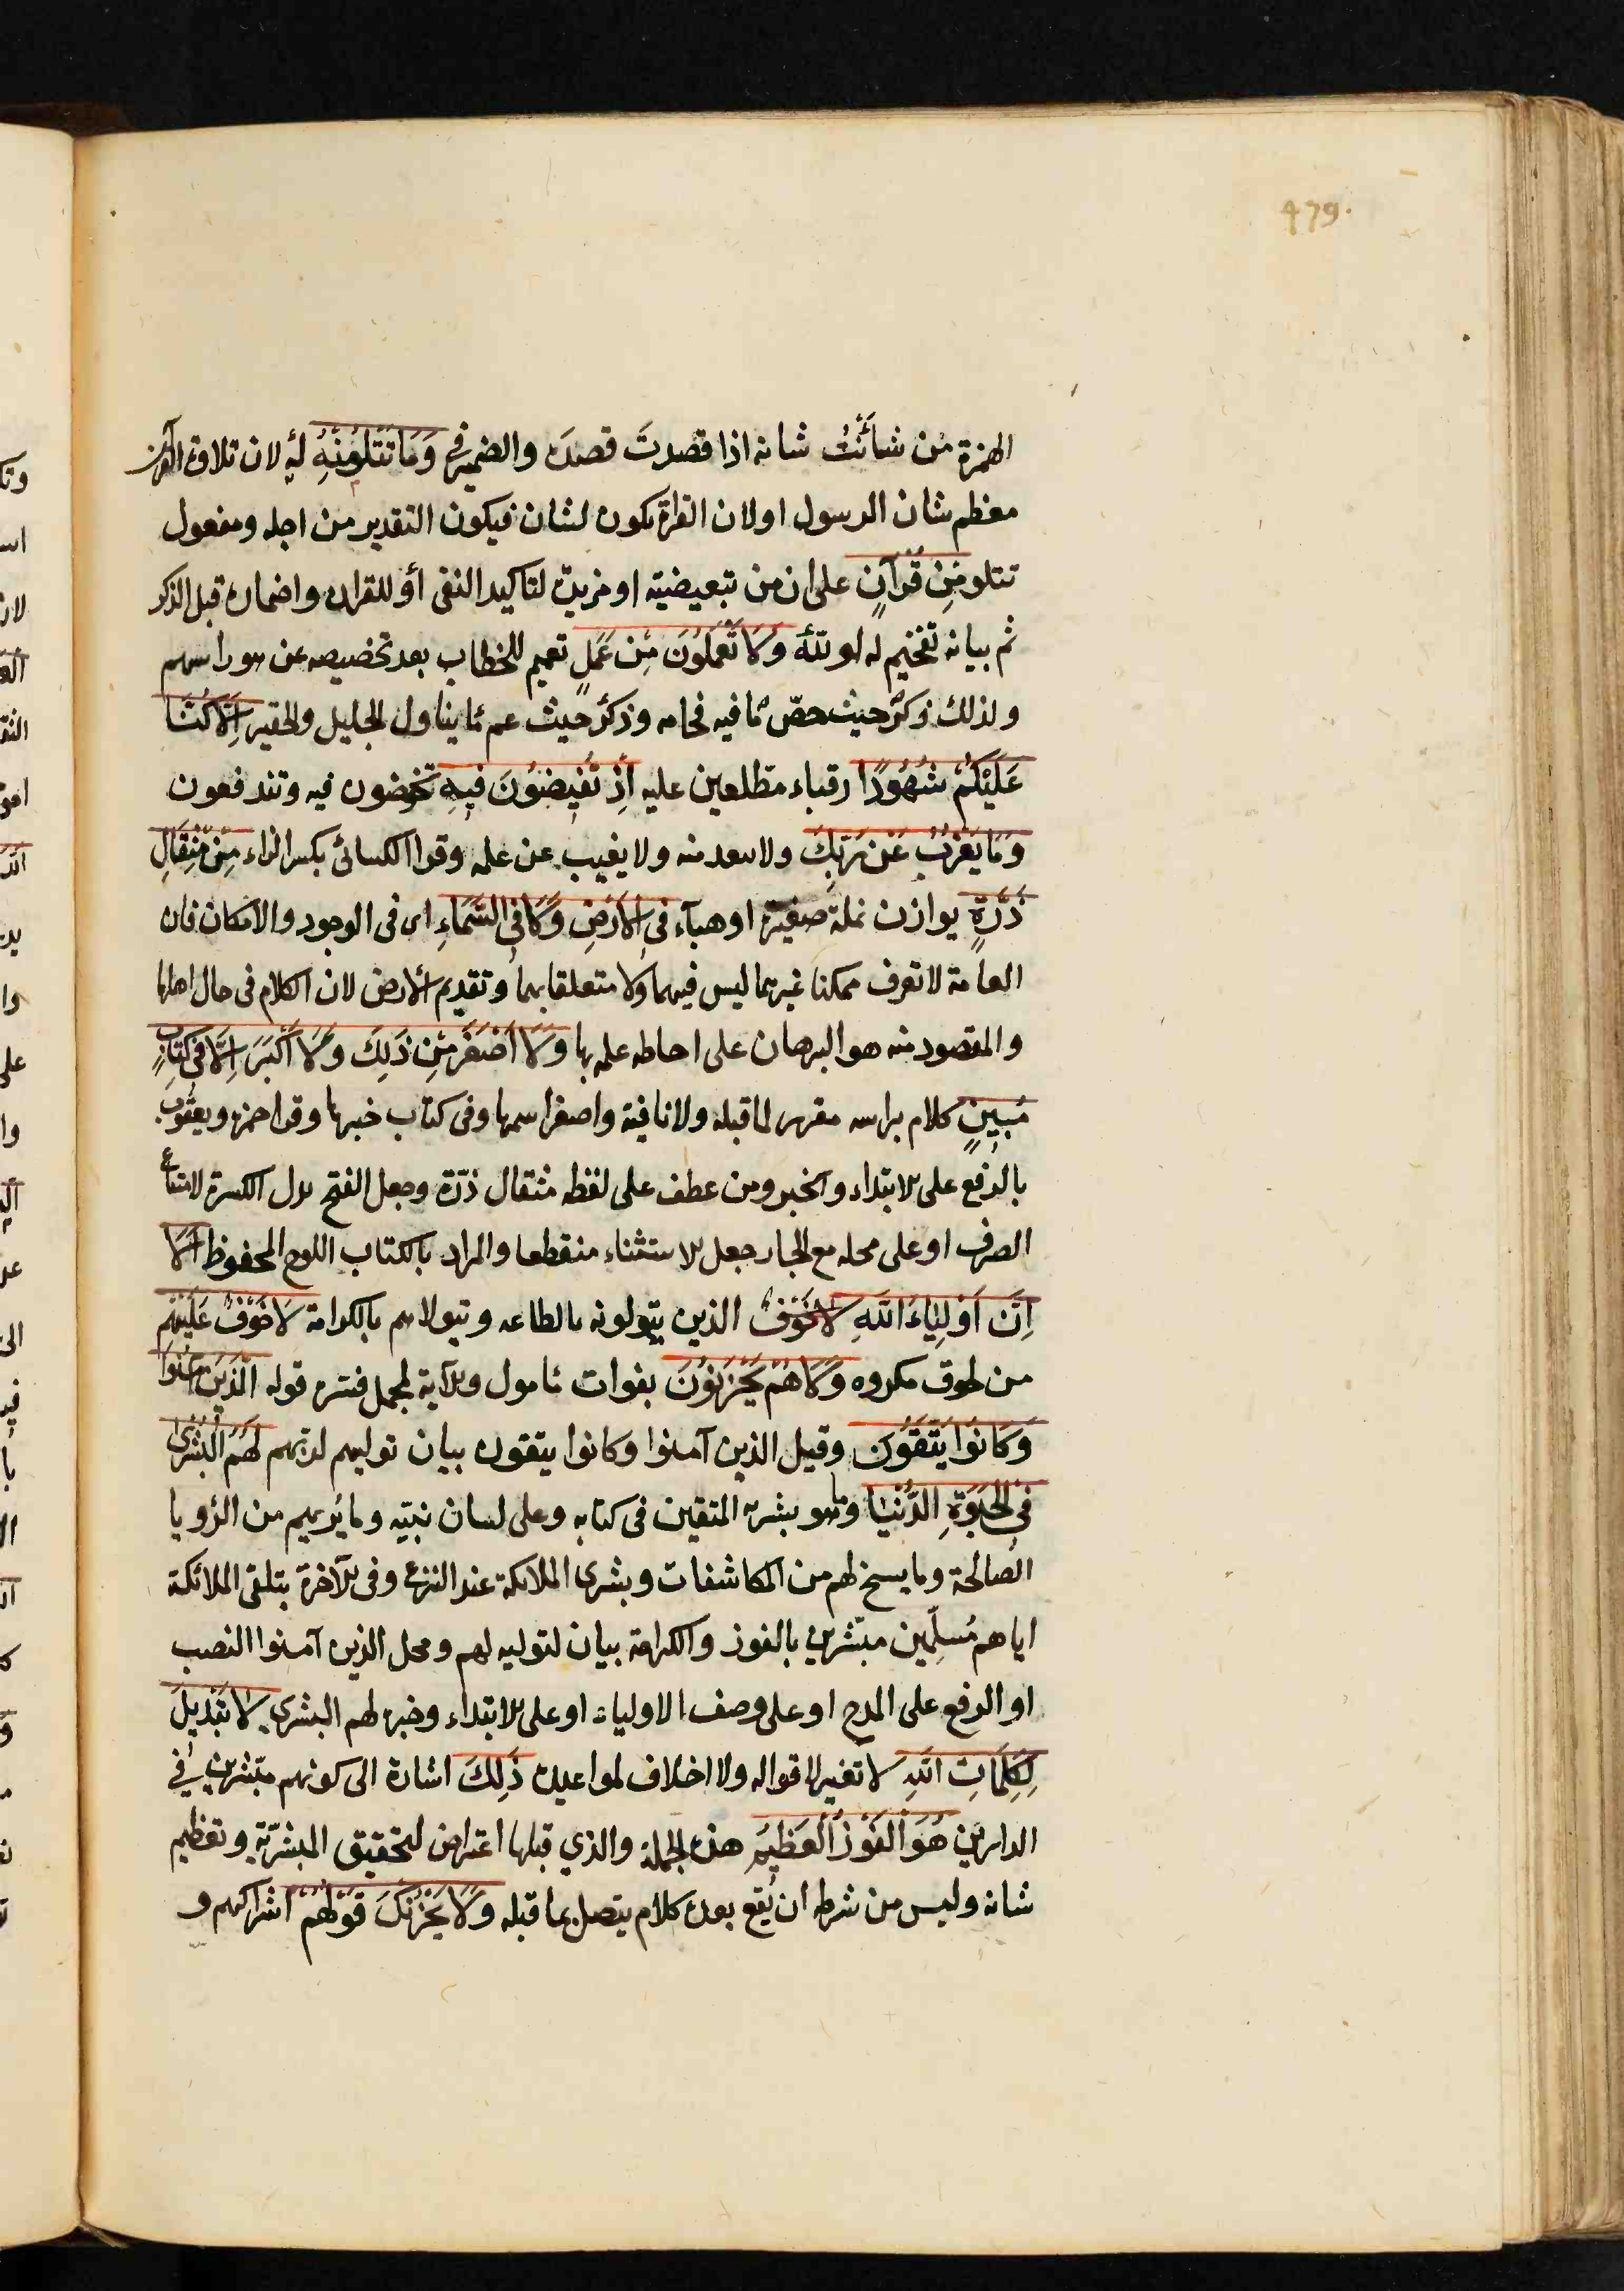 479.
الهمزة من شأنتُ شانه اذا قصدتَ قصدَه والضمير في وَمَا تَتْلُو مِنْهُ له لان تلاوة القرآن
معظم شان الرسول او لان القراة تكون لشان فيكون التقدير من اجله ومفعول
تتلو مِنْ قُرْآنٍ على ان من تبعيضية او مزيدة لتاكيد النفى أو للقران واضماره قبل الذكر
ثم بيانه تفخيم له او لله وَلَا تَعْمَلُونَ مِنْ عَمَلٍ تعميم للخطاب بعد تخصيصه عن هو راسهم
ولذلك ذكر حيث خصّ ما فيه فخامه وذكر حيث عم ما يتناول الجليل والحقير اِلَّا كُنَّا
عَلَيْكُمْ شُهُودًا رقباء مطّلعين عليه اِذْ تُفِيضُونَ فِيهِ تخوضون فيه وتندفعون
وَمَا يَعْزُبُ عَنْ رَبِّكَ ولا يبعد منه ولا يغيب عن علمه وقرا الكسائى بكسر الزاء مِنْ مِثْقَالِ
ذَرَّةٍ يوازن نملة صغيرة او هبآء فِي الْاَرْضِ وَلَا فِي السَّمَاءِ اى فى الوجود والامكان فان
العامة لا تعرف ممكنا غيرهما ليس فيهما ولا متعلقا بهما وتقديم الارض لان الكلام فى حال اهلها
والمقصود منه هو البرهان على احاطه علمه بها وَلَا اَصْغَرَ مِنْ ذَلِكَ وَلَا اَكْبَرَ اِلَّا فِي كِتَابٍ
مُبِينٍ كلام براسه مقرر لما قبله ولا نافية واصغر اسمها وفى كتاب خبرها وقرا حمزه ويعقوب
بالرفع على الابتداء والخبر ومن عطف على لفظ مثقال ذرّة وجعل الفتح بدل الكسرة لامتناع
الصرف او على محله مع الجار جعل الاستثناء منقطعا والمراد بالكتاب اللوح المحفوظ اَلَا
اِنَّ اَوْلِيَاءَ اللّٰهِ لَا خَوْفٌ الذين يتولونه بالطاعه ويتولاهم بالكرامة لَا خَوْفٌ عَلَيْهِمْ
من لحوق مكروه وَلَا هُمْ يَحْزَنُونَ بفوات مامول والآية لمجمل فسره قوله الَّذِينَ آمَنُوا
وَكَانُوا يَتَّقُونَ وقيل الذين آمنوا وكانوا يتقون بيان توليهم لربّهم لَهُمُ الْبُشْرَى
فِي الْحَيَوٰةِ الدُّنْيَا وهو ما بشر به المتقين فى كتابه وعلى لسان نبيّه وما يُريهم من الرؤيا
الصالحة وما يسنح لهم من المكاشفات وبشرى الملائكة عند النزع وفى الآخرة بتلقى الملائكة
اياهم مُسلّمين مبشّرين بالفوز والكرامة بيان لتوليه لهم ومحل الذين آمنوا النصب
او الرفع على المدح او على وصف الاولياء او على الابتداء وخبره لهم البشرى لَا تَبْدِيلَ
لِكَلِمَاتِ اللّٰهِ لا تغيير لاقواله ولا اخلاف لمواعيده ذَلِكَ اشارة الى كونهم مبشّرين في
الدارين هُوَ الْفَوْزُ الْعَظِيمُ هذه الجملة والذي قبلها اعتراض لتحقيق المبشّربه وتعظيم
شانه وليس من شرطه ان يقع بعده كلام يتصل بما قبله وَلَا يَحْزُنْكَ قَوْلُهُمْ اشراكهم و